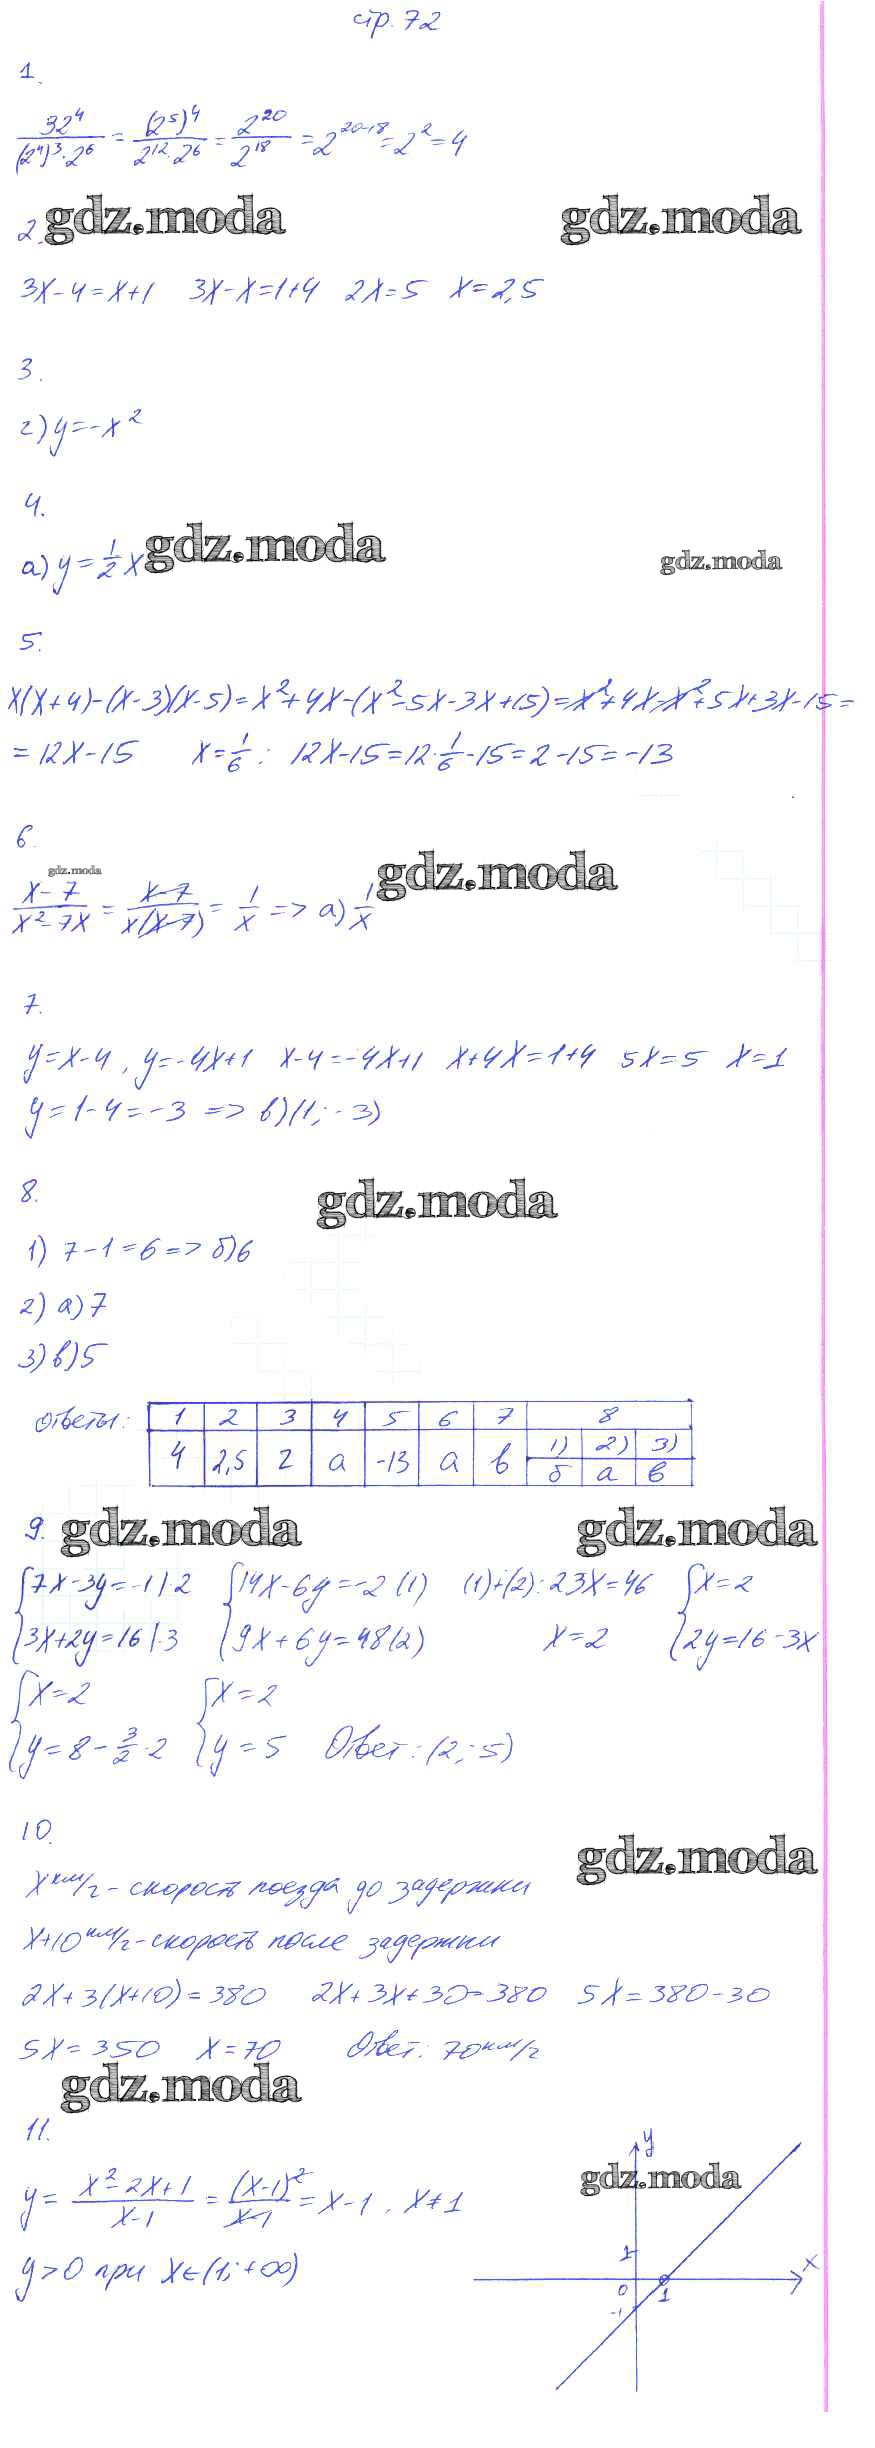 стр. 72
1.
32⁴/((2⁴)³·2⁶) = (2⁵)⁴/(2¹²·2⁶) = 2²⁰/2¹⁸ = 2²⁰⁻¹⁸ = 2² = 4
gdz.moda gdz.moda
2.
3x-4=x+1 3x-x=1+4 2x=5 x=2,5
3.
г) y=-x²
4.
а) y=1/2 x gdz.moda gdz.moda
5.
x(x+4)-(x-3)(x-5)=x²+4x-(x²-5x-3x+15)=x²+4x-x²+5x+3x-15=
=12x-15 x=1/6: 12x-15=12·1/6-15=2-15=-13
6.
gdz.moda gdz.moda
(x-7)/(x²-7x) = (x-7)/(x(x-7)) = 1/x => а) 1/x
7.
y=x-4, y=-4x+1 x-4=-4x+1 x+4x=1+4 5x=5 x=1
y=1-4=-3 => в)(1;-3)
8. gdz.moda
1) 7-1=6=> б)6
2) а)7
3) в)5
ответы: 1 2 3 4 5 6 7 8
4 2,5 г а -13 а в 1) 2) 3)
б а в
9. gdz.moda gdz.moda
{7x-3y=-1|·2 {14x-6y=-2 (1) (1)+(2): 23x=46 {x=2
3x+2y=16|·3 9x+6y=48(2) x=2 2y=16-3x
{x=2 {x=2
y=8-3/2·2 y=5 Ответ: (2;5)
10. gdz.moda
x км/ч - скорость поезда до задержки
x+10 км/ч - скорость после задержки
2x+3(x+10)=380 2x+3x+30=380 5x=380-30
5x=350 x=70 Ответ: 70 км/ч
gdz.moda
11. y
gdz.moda
y = (x²-2x+1)/(x-1) = (x-1)²/(x-1) = x-1, x≠1
y>0 при x∈(1;+∞)
1
x
0 1
-1